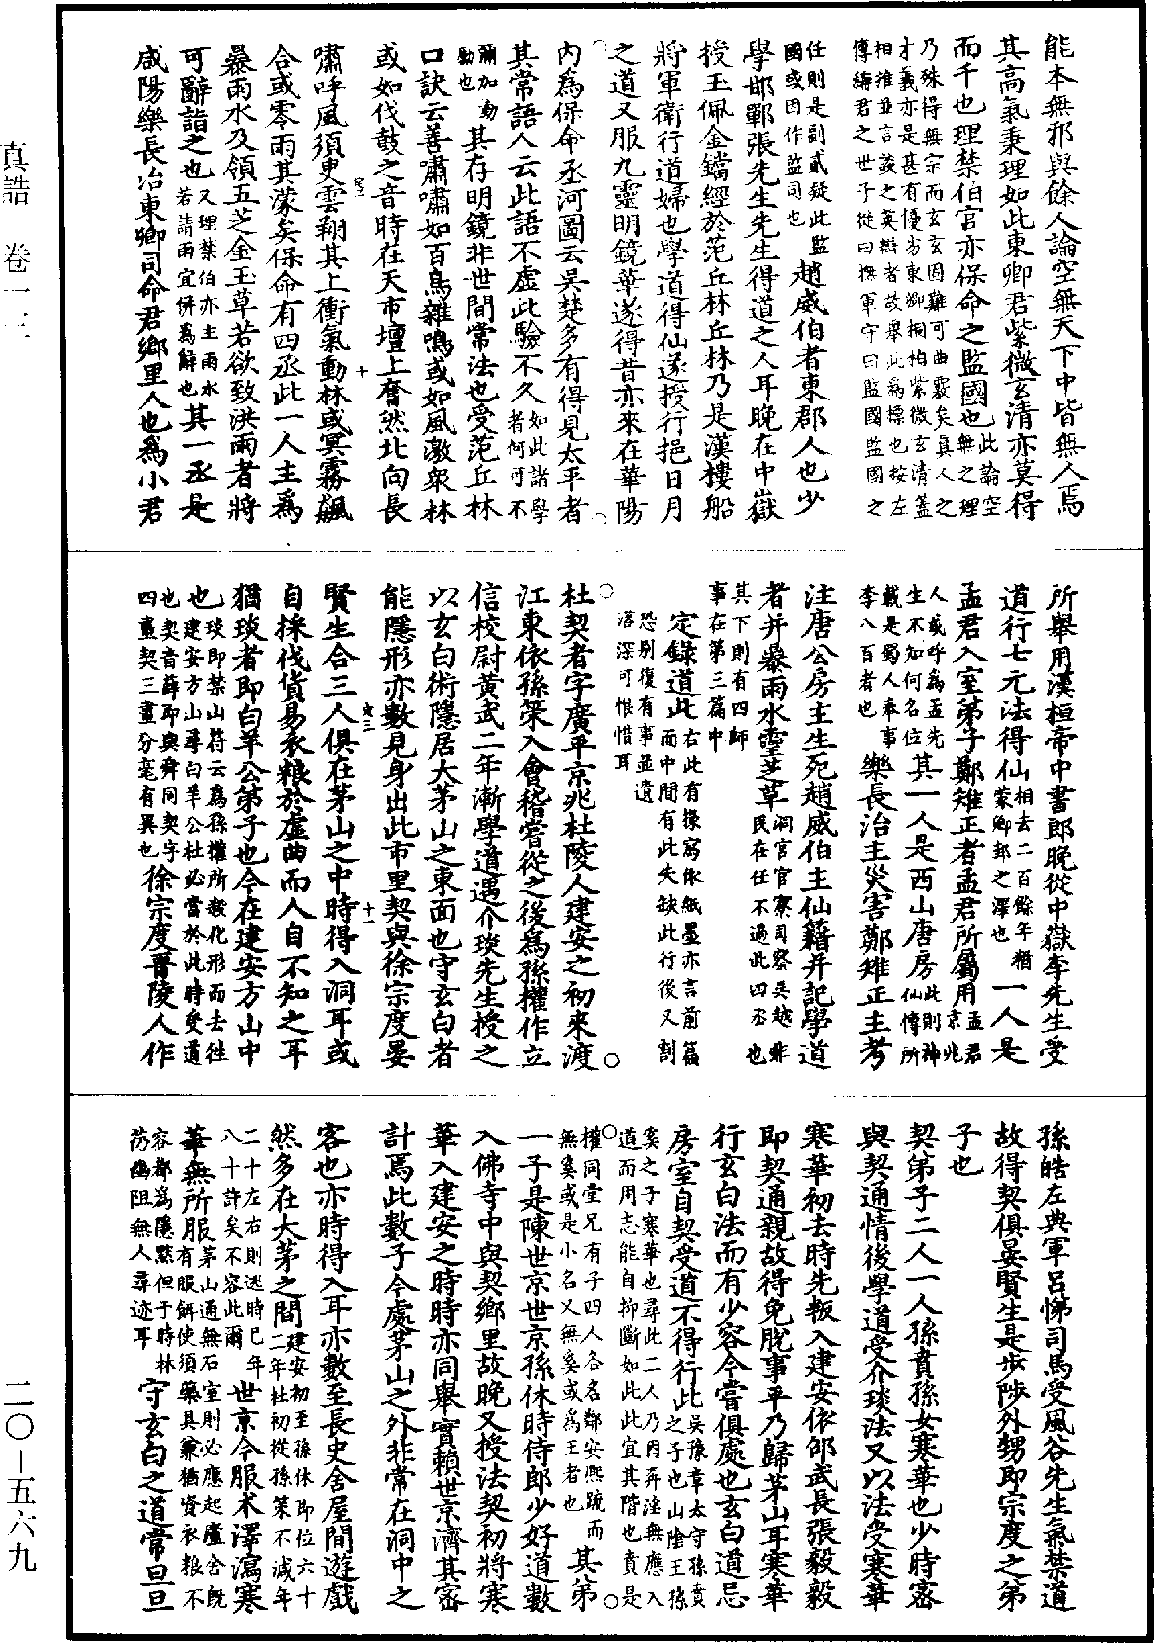 真誥 卷一三
二〇—五六九
能本無邪與餘人論空無天下中皆無人焉
其高氣秉理如此東卿君紫微玄清亦莫得
而千也理禁伯官亦保命之監國也此論空無之理
乃殊得無宗而玄玄固難可曲覈矣真人之
才義亦是甚有優劣東卿桐柏紫微玄清蓋
相推並言談之英辯者故舉此為標也按左
傳稱君之世子從曰撫軍守曰監國監國之
任則是副貳疑此監
國或因作監司也趙威伯者東郡人也少
學邯鄲張先生先生得道之人耳晚在中嶽
授玉佩金鐺經於范丘林丘林乃是漢樓船
將軍衛行道婦也學道得仙遂授行挹日月
之道又服九靈明鏡華遂得昔亦來在華陽
內為保命丞河圖云吳楚多有得見太平者
其常語人云此語不虛此驗不久如此諸學者何可不
彌加勤
勤也其存明鏡非世間常法也受范丘林
口訣云善嘯嘯如百鳥雜鳴或如風激衆林
或如伐鼓之音時在天市壇上奮然北向長
嘯呼風須臾雲翔其上衝氣動林或冥霧飊
合或零雨其濛矣保命有四丞此一人主為
暴雨水及領五芝金玉草若欲致洪雨者將
可辭詣之也又理禁伯亦主雨水
若請雨宜併為辭也其一丞是
咸陽樂長治東卿司命君鄉里人也為小君
所舉用漢桓帝中書郎晚從中嶽李先生受
道行七元法得仙相去二百餘年猶
蒙鄉邦之澤也一人是
孟君入室弟子鄭雉正者孟君所屬用孟君京兆
人或呼為孟先
生不知何名位其一人是西山唐房此則神仙傳所
載是蜀人奉事
李八百者也樂長治主災害鄭雉正主考
注唐公房主生死趙威伯主仙籍并記學道
者并暴雨水靈芝草洞宮官寮司察吳越非民在任不過此四丞也
其下則有四師
事在第三篇中
定錄道此右此有掾寫依紙墨亦言前篇
而中間有此失缺此行後又割
恐別復有事並遺
落深可惟惜耳
杜契者字廣平京兆杜陵人建安之初來渡
江東依孫策入會稽嘗從之後為孫權作立
信校尉黃武二年漸學道遇介琰先生授之
以玄白術隱居大茅山之東面也守玄白者
能隱形亦數見身出此市里契與徐宗度晏
賢生合三人俱在茅山之中時得入洞耳或
自採伐貨易衣粮於虛曲而人自不知之耳
猶琰者即白羊公弟子也今在建安方山中
也琰即禁山符云為孫權所殺化形而去往
建安方山尋白羊公杜必當於此時受道
也契音薛即與舜同契字
四畫契三畫分毫有異也徐宗度晉陵人作
孫皓左典軍呂悌司馬受風谷先生氣禁道
故得契俱晏賢生是步陟外甥即宗度之弟
子也
契弟子二人一人孫賁孫女寒華也少時密
與契通情後學道受介琰法又以法受寒華
寒華初去時先叛入建安依邵武長張毅毅
即契通親故得免脫事平乃歸茅山耳寒華
行玄白法而有少容今嘗俱處也玄白道忌
房室自契受道不得行此吳豫章太守孫賁之子也山陰王孫
奚之子寒華也尋此二人乃因弄淫無應入
道而用志能自抑斷如此此宜其階也賁是
權同堂兄有子四人各名鄰安熙蹠而
無奚或是小名又無奚或為王者也其弟
一子是陳世京世京孫休時侍郎少好道數
入佛寺中與契鄉里故晚又授法契初將寒
華入建安之時時亦同舉實賴世京濟其密
計焉此數子今處茅山之外非常在洞中之
客也亦時得入耳亦數至長史舍屋間遊戲
然多在大茅之間建安初至孫休即位六十
二年杜初從孫策不減年
二十左右則逃時已年
八十許矣不容此爾世京今服朮澤瀉寒
華無所服茅山通無石室則必應起廬舍既
有服餌使須藥具兼猶資衣粮不
容都為隱黙但于時林
芴幽阻無人尋迹耳守玄白之道常旦旦